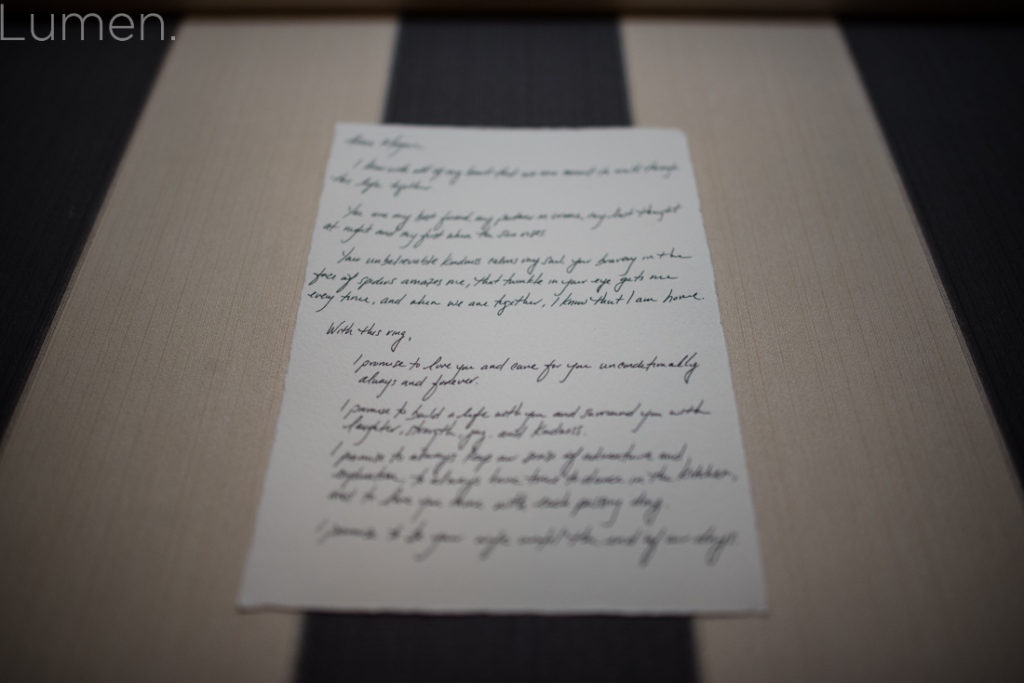 Lumen.
I know with all of my heart that we are meant to walk through
this life together.
You are my best friend, my partner in crime, my last thought
at night and my first when the sun rises.
Your unbelievable kindness calms my soul, your bravery in the
face of spiders amazes me, that twinkle in your eye gets me
every time, and when we are together, I know that I am home.
With this ring,
I promise to love you and care for you unconditionally
always and forever.
I promise to build a life with you and surround you with
laughter, strength, joy, and kindness.
I promise to always keep our sense of adventure and
exploration, to always have time to dance in the kitchen,
and to love you more with each passing day.
I promise to be your wife until the end of our days.